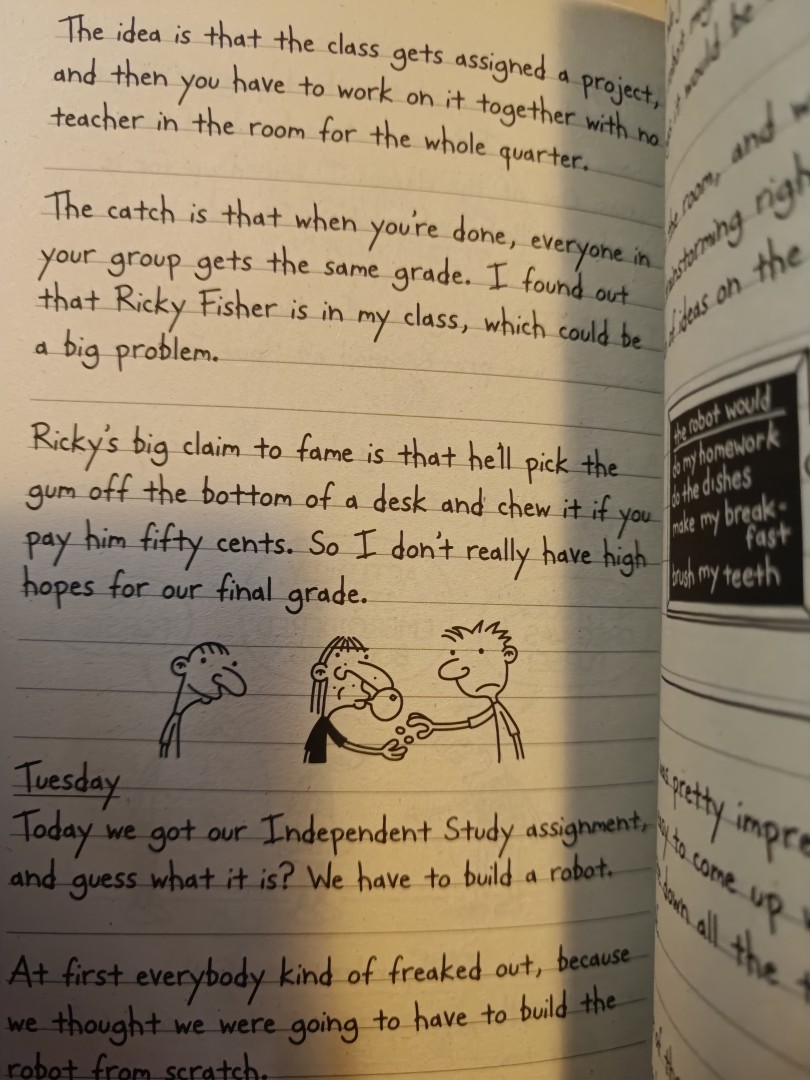 The idea is that the class gets assigned a project,
and then you have to work on it together with no
teacher in the room for the whole quarter.
The catch is that when you're done, everyone in
your group gets the same grade. I found out
that Ricky Fisher is in my class, which could be
a big problem.
Ricky's big claim to fame is that he'll pick the
gum off the bottom of a desk and chew it if you
pay him fifty cents. So I don't really have high
hopes for our final grade.
Tuesday
Today we got our Independent Study assignment,
and guess what it is? We have to build a robot.
At first everybody kind of freaked out, because
we thought we were going to have to build the
robot from scratch.
would be
the room, and
right
ideas on the
the robot would
do my homework
do the dishes
make my break-
fast
brush my teeth
pretty
to come up
down all the